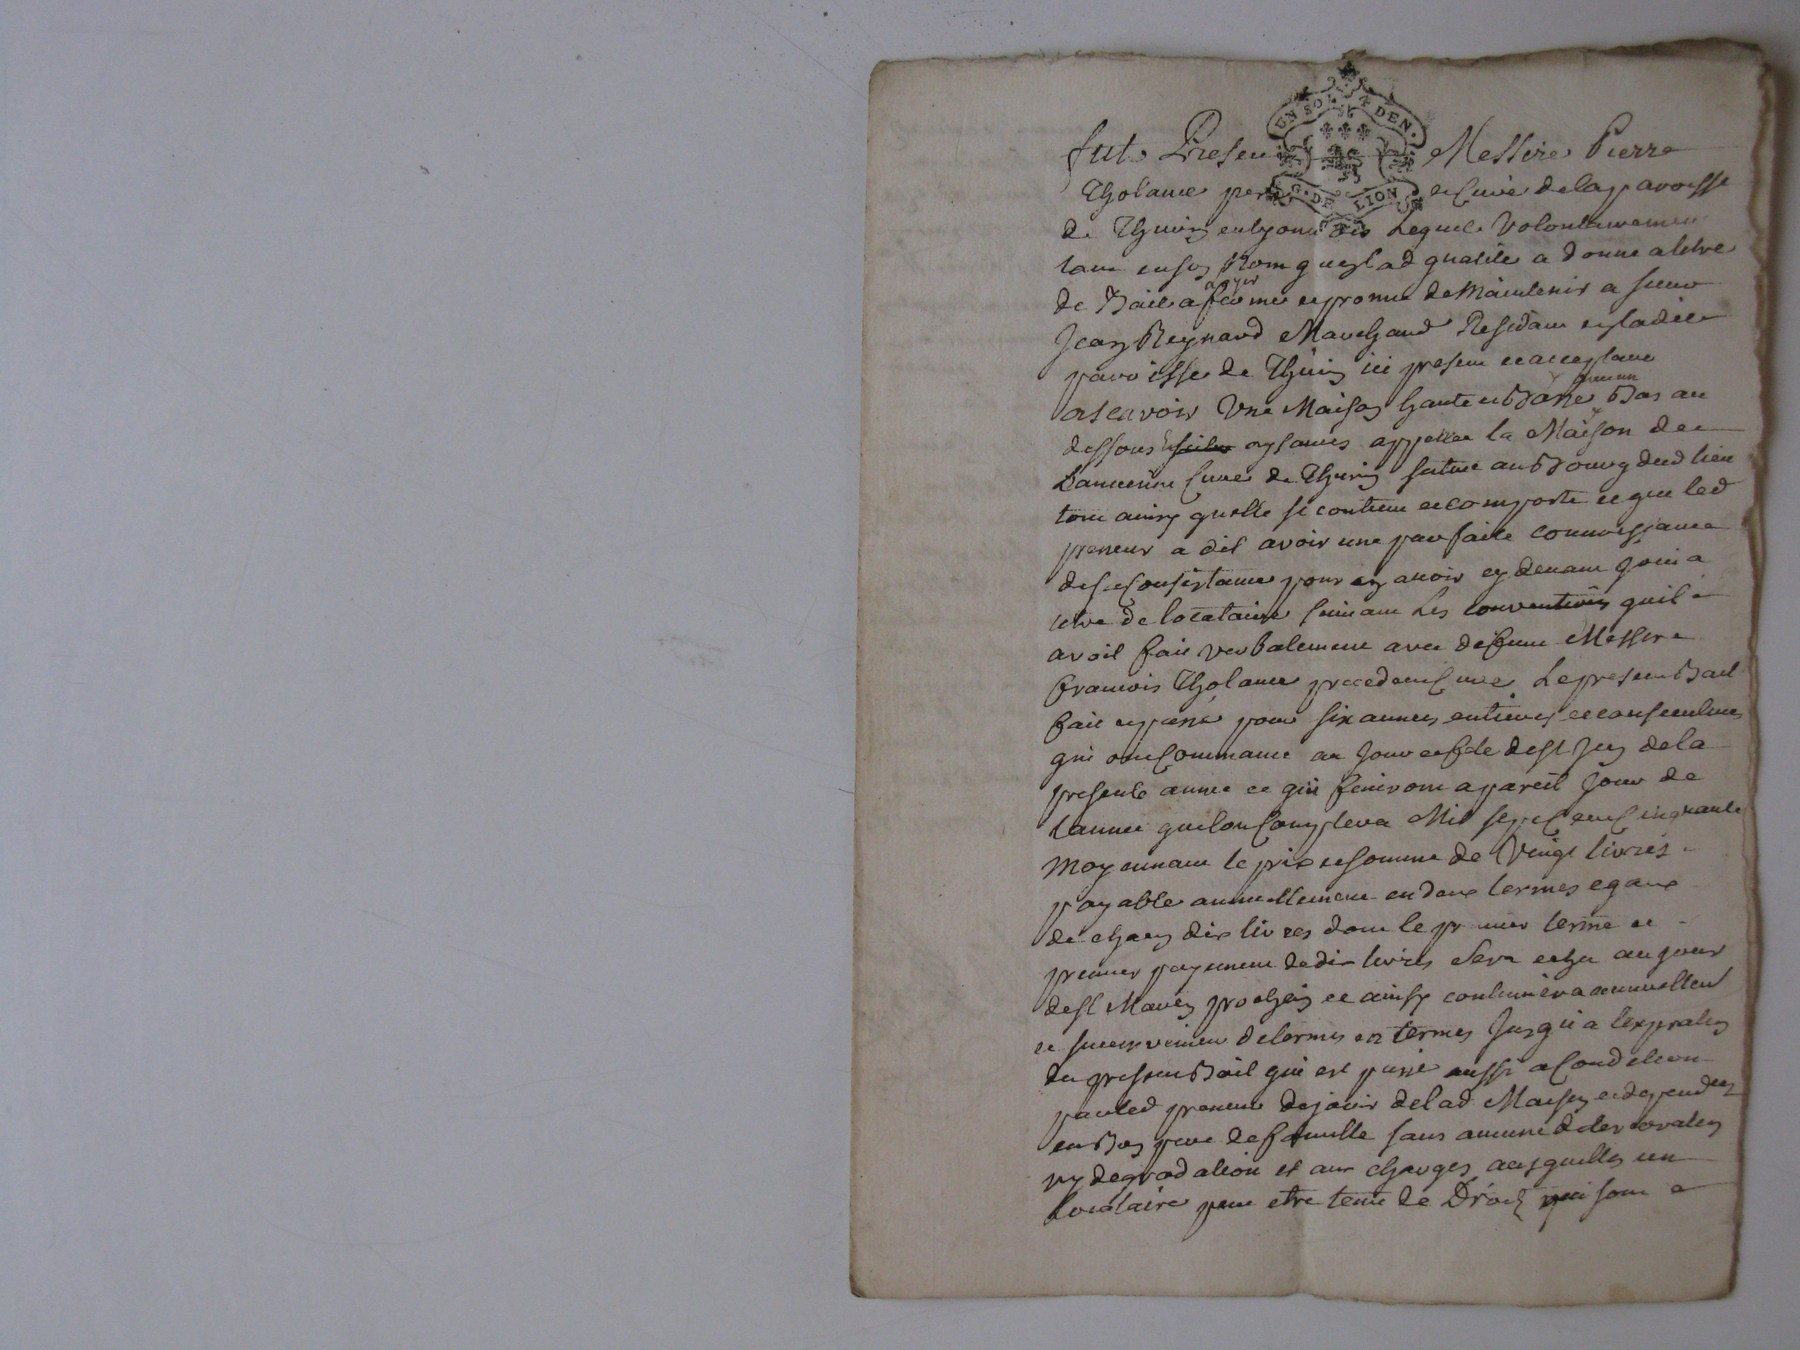 UN SOL 4 DEN.
G. DE LION
fut Present Messire Pierre
Tholance et Curé de la paroisse
de Thurin en lyonnois Lequel volontairement
tant en son Nom quen lad qualité a donné a titre
a loyer
de Bail a ferme et promet de Maintenir a sieur
Jean Reynard Marchand Residant en ladite
paroisse de Thurin ici present et acceptant
ascavoir Une Maison haute et Basse Bas au
dessous appellée la Maison de
L'ancienne Cure de Thurin située au Bourg dud lieu
tout ainsy quelle se contient et comporte et que led
preneur a dit avoir une parfaite connoissance
pour en avoir cy devant joui a
titre de locataire suivant Les conventions quil
avoit fait verbalement avec defunt Messire
francois Tholance precedent Curé Le present Bail
fait et passé pour six années entieres et consecutives
qui ont Commancé au Jour et fete de St Jean de la
presente année et qui finiront a pareil Jour de
lannée que lon Comptera Mil sept Cent Cinquante
Moyennant le prix et somme de Vingt livres
payable annuellement en deux termes egaux
de chacun dix livres dont le premier terme et
premier payement de dix livres Sera echu au jour
de St Martin prochain et ainsy continuera annuellemt
et successivement de termes en termes Jusqu'a lexpiration
du present Bail qui est passé aussi a Condition
par led preneur de jouir de lad Maison et dependces
en Bon pere de famille sans aucune deterioration
ny degradation et aux charges ausquelles un
locataire peut etre tenu de Droit qui sont